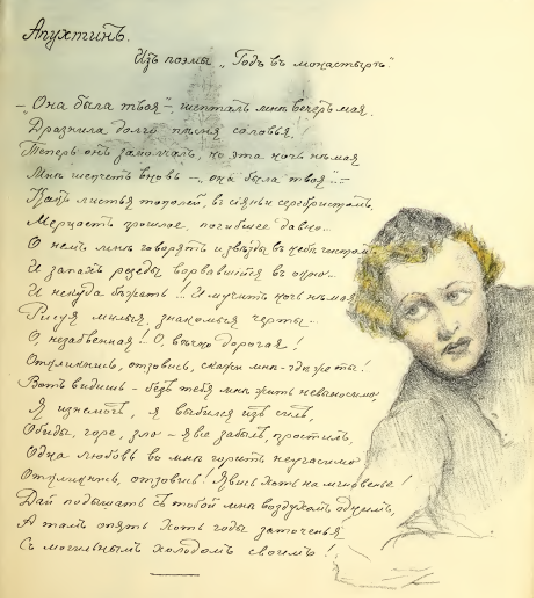 Апухтинъ.
Изъ поэмы „Годъ въ монастырѣ“
–„Она была твоя“–, шепталъ мнѣ вечеръ мая,
Дразнила долго пѣсня соловья!
Теперь онъ замолчалъ, но эта ночь нѣмая
Мнѣ шепчетъ вновь –„она была твоя“–
Какъ листья тополей, въ сіяньи серебристомъ,
Мерцаетъ прошлое, погибшее давно...
О немъ мнѣ говорятъ и звѣзды въ небѣ чистомъ
И запахъ резеды ворвавшійся въ окно...
И некуда бѣжать!! И мучитъ ночь нѣмая
Рисуя милыя, знакомыя черты...
О, незабвенная! О, вѣчно дорогая!
Откликнись, отзовись, скажи мнѣ – гдѣ же ты!
Вотъ видишь – безъ тебя мнѣ жить невыносимо,
Я изнемогъ, я выбился изъ силъ,
Обиды, горе, зло – я все забылъ, простилъ,
Одна любовь во мнѣ горитъ неугасимо
Откликнись, отзовись! Явись хоть на мгновенье!
Дай подышать съ тобой мнѣ воздухомъ однимъ,
А тамъ опять хоть годы заточенья
Съ могильнымъ холодомъ своимъ!